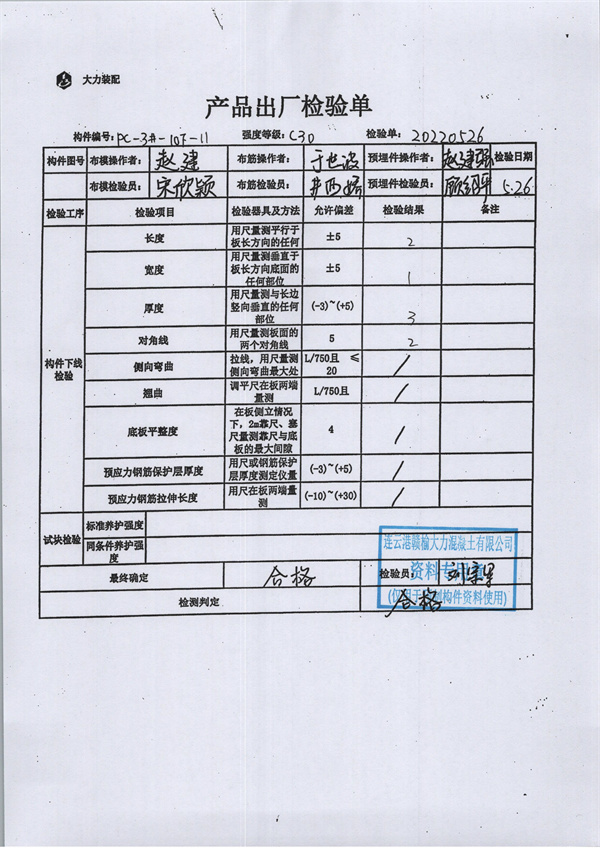 大力装配
产品出厂检验单
构件编号: PC-3#-10F-11 强度等级: C30 检验单: 20220526
构件图号 布模操作者: 赵建 布筋操作者: 于世波 预埋件操作者: 赵建强 检验日期
布模检验员: 宋欣颖 布筋检验员: 预埋件检验员: 5.26
检验工序 检验项目 检验器具及方法 允许偏差 检验结果 备注
构件下线检验
长度 用尺量测平行于板长方向的任何 ±5 2
宽度 用尺量测垂直于板长方向底面的任何部位 ±5 1
厚度 用尺量测与长边竖向垂直的任何部位 (-3)~(+5) 3
对角线 用尺量测板面的两个对角线 5 2
侧向弯曲 拉线,用尺量测侧向弯曲最大处 L/750且 ≤20 /
翘曲 调平尺在板两端量测 L/750且 /
底板平整度 在板侧立情况下,2m靠尺、塞尺量测靠尺与底板的最大间隙 4 /
预应力钢筋保护层厚度 用尺或钢筋保护层厚度测定仪量 (-3)~(+5) /
预应力钢筋拉伸长度 用尺在板两端量测 (-10)~(+30) /
试块检验 标准养护强度
同条件养护强度
最终确定 合格 检验员:
检测判定 合格
连云港赣榆大力混凝土有限公司
资料专用章
(仅用于 构件资料使用)